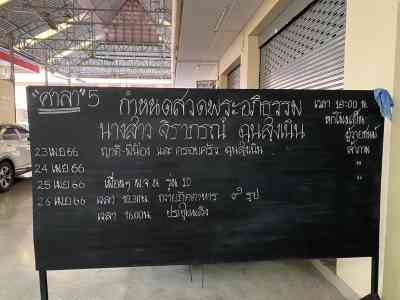 "ศาลา" 5
กำหนดสวดพระอภิธรรม เวลา 18:00 น.
นางสาว จิราภรณ์ ฉุนสูงเนิน
23 เมย 66 ญาติ-พี่น้อง และ ครอบครัว ฉุนสูงเนิน เจ้าภาพ
24 เมย 66 "
25 เมย 66 เพื่อนๆ ม.จ.น. รุ่น 10 "
26 เมย 66 เวลา 10.30น. ถวายภัตตาหาร ๙ รูป
เวลา 16.00น. ประชุมเพลิง